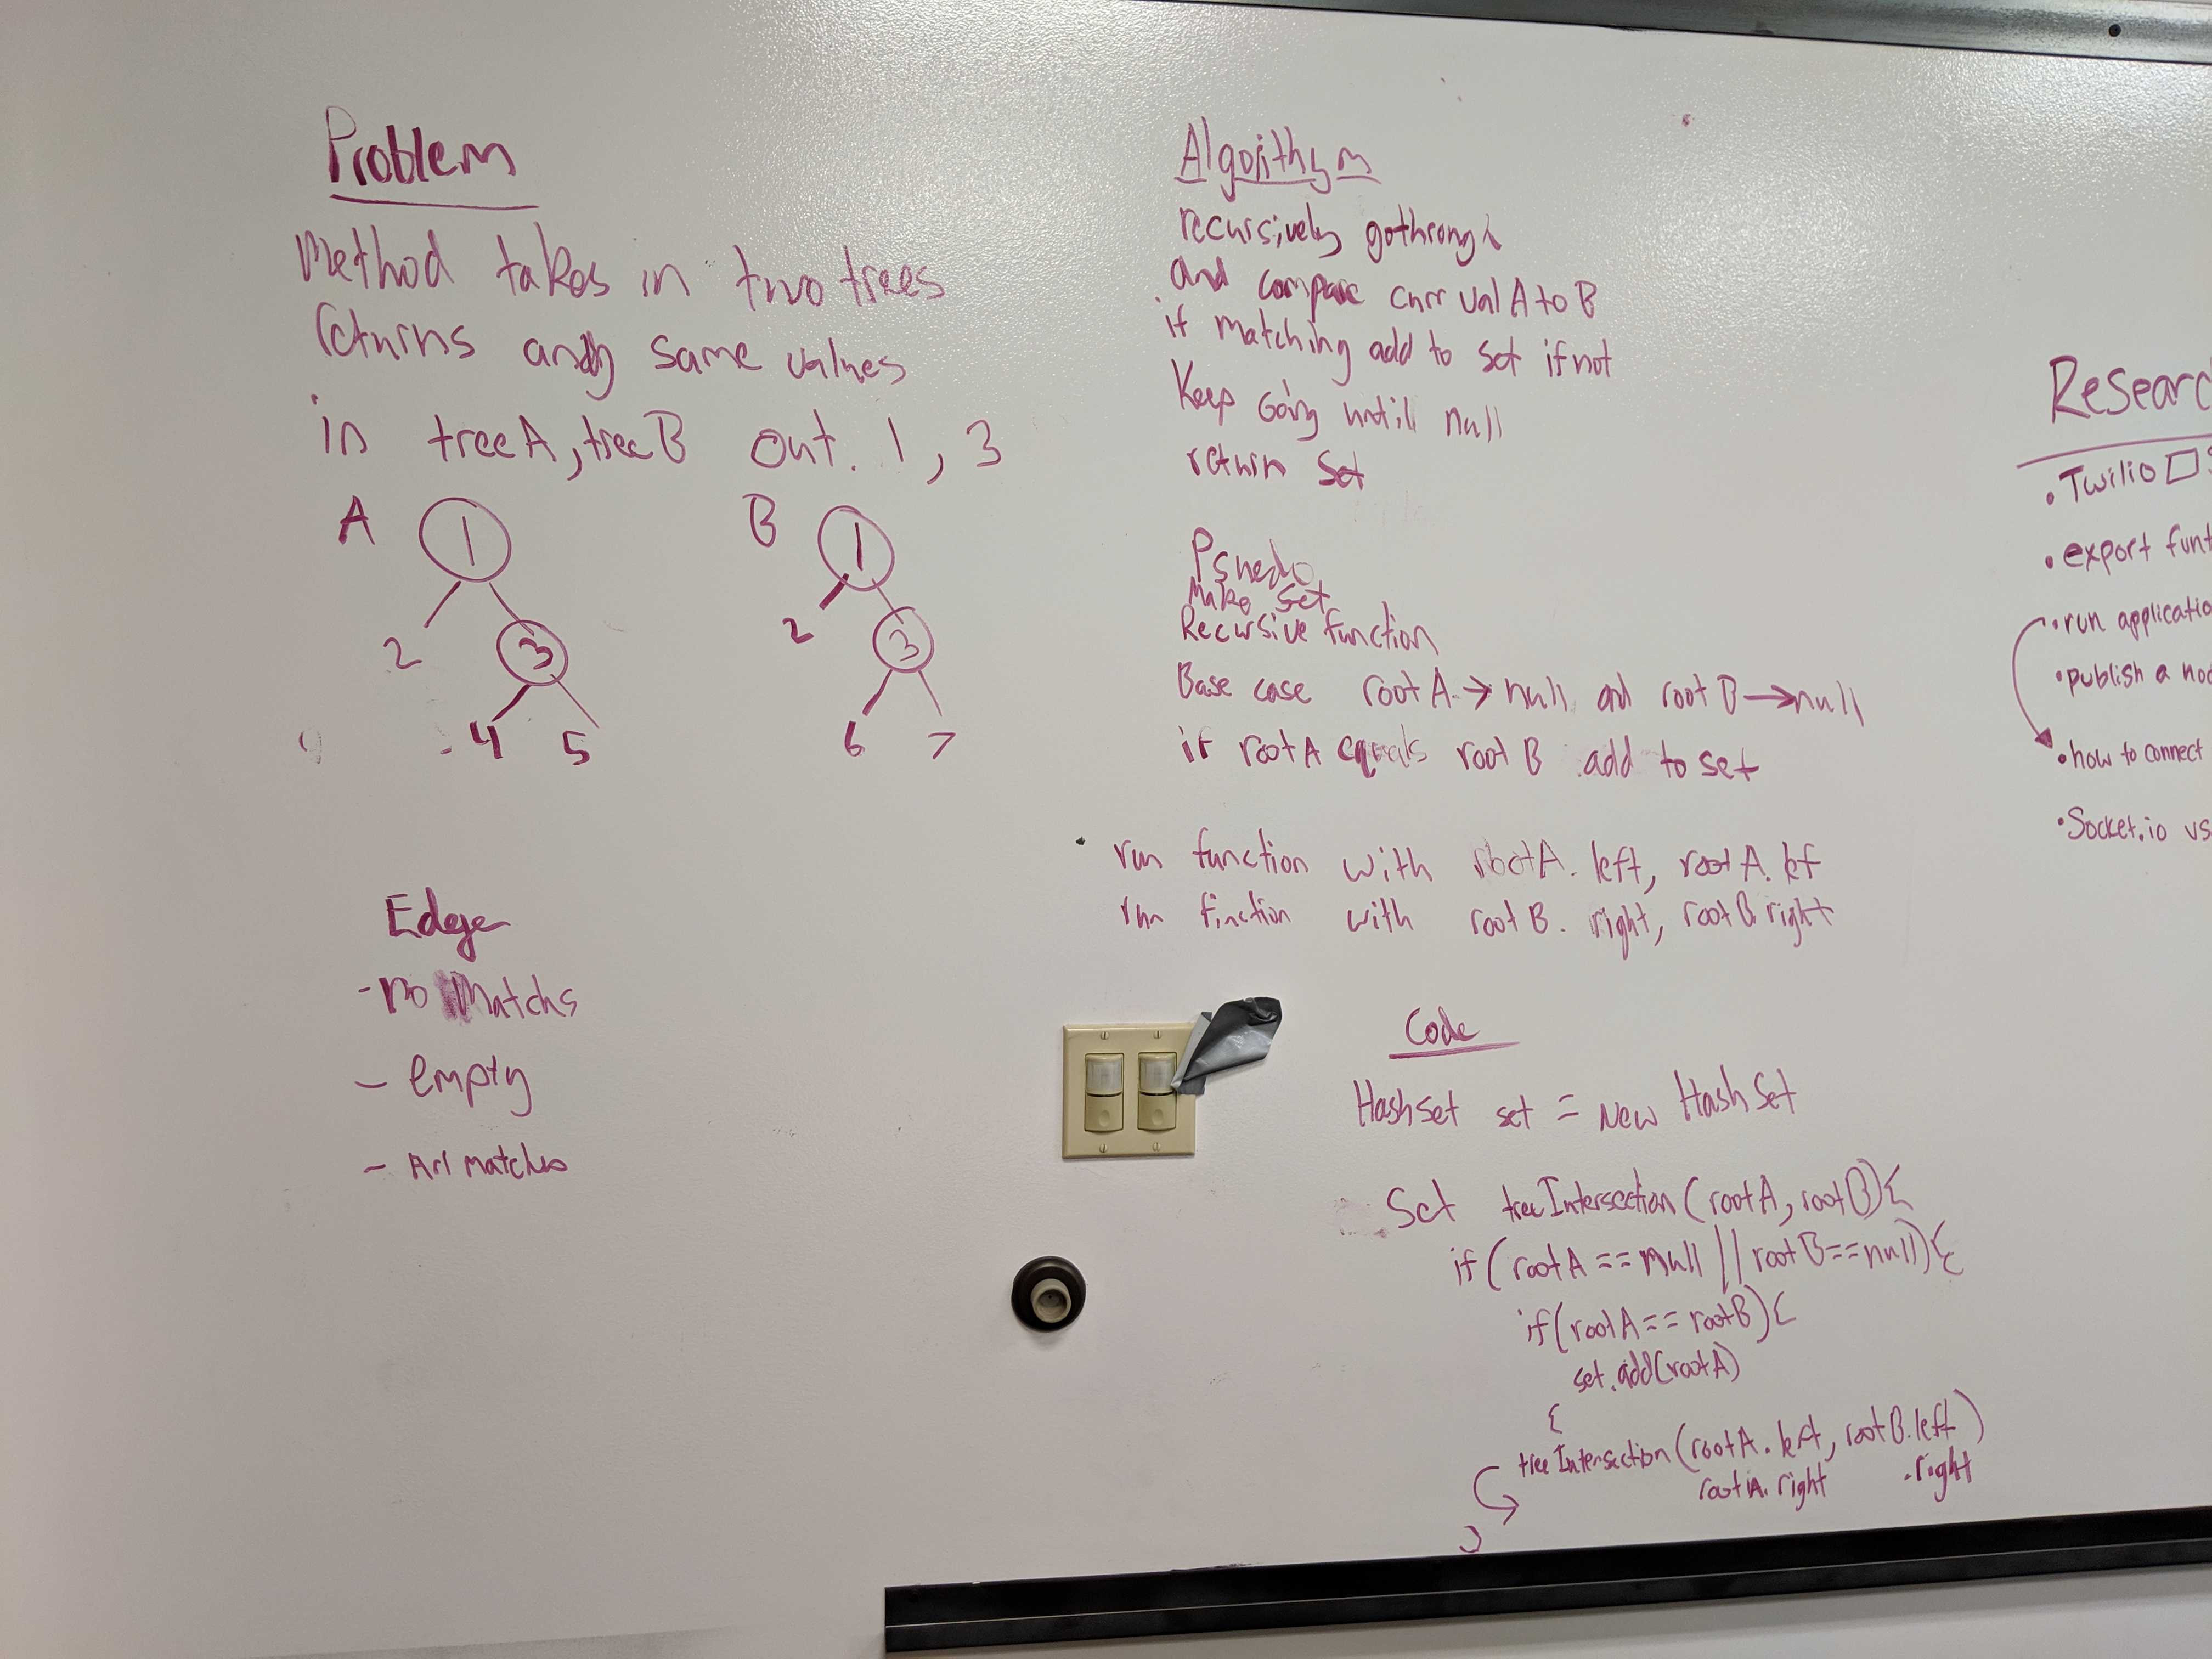 Problem
Method takes in two trees
returns any same values
in treeA, treeB out. 1, 3
A
1
2
3
4 5
B
1
2
3
6 7
Edge
- no Matchs
- empty
- All matches
Algorithym
recursively gothrough
and compare curr val A to B
if matching add to set if not
Keep Going untill null
return set
Psuedo
Make set
Recursive function
Base case rootA → null and root B → null
if rootA equals root B add to set
run function with rootA. left, rootA. lef
run function with root B. right, root B right
Code
HashSet set = New HashSet
Set treeIntersection (rootA, rootB){
if (rootA == null || rootB==null){
if(rootA == rootB){
set.add(rootA)
{
treeIntersection (rootA.left, rootB.left)
rootA.right .right
}
Researc
• Twilio
• export funt
• run applicatio
• publish a nod
• how to connect
• Socket.io vs